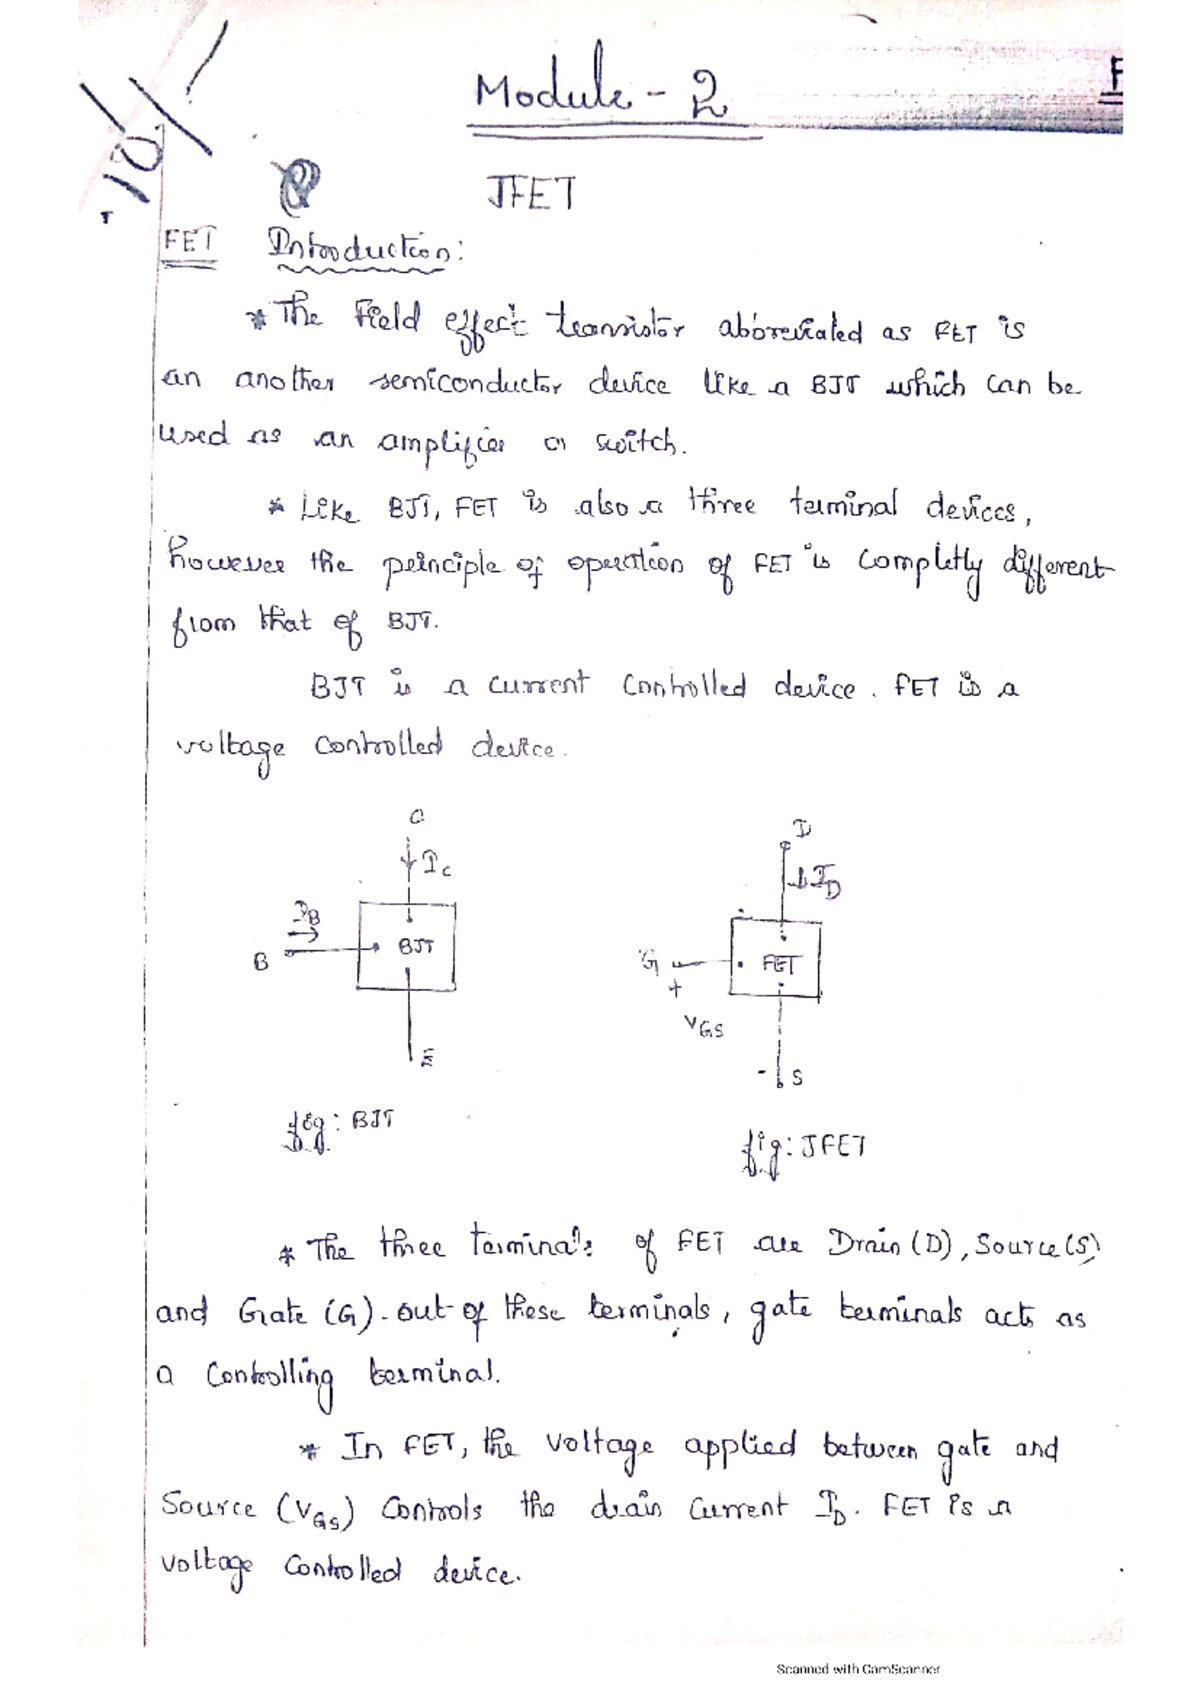 Module - 2
JFET
FET Introduction:
* The Field effect transistor abbreviated as FET is
an another semiconductor device like a BJT which can be
used as an amplifier or switch.
* Like BJT, FET is also a three terminal devices,
however the principle of operation of FET is completly different
from that of BJT.
BJT is a current controlled device. FET is a
voltage controlled device.
C
IC
IB
B
BJT
E
fig: BJT
D
ID
G
FET
+
VGS
- S
fig: JFET
* The three terminals of FET are Drain (D), Source (S)
and Gate (G). out of these terminals, gate terminals acts as
a controlling terminal.
* In FET, the voltage applied between gate and
Source (VGS) controls the drain current ID. FET is a
voltage controlled device.
Scanned with CamScanner